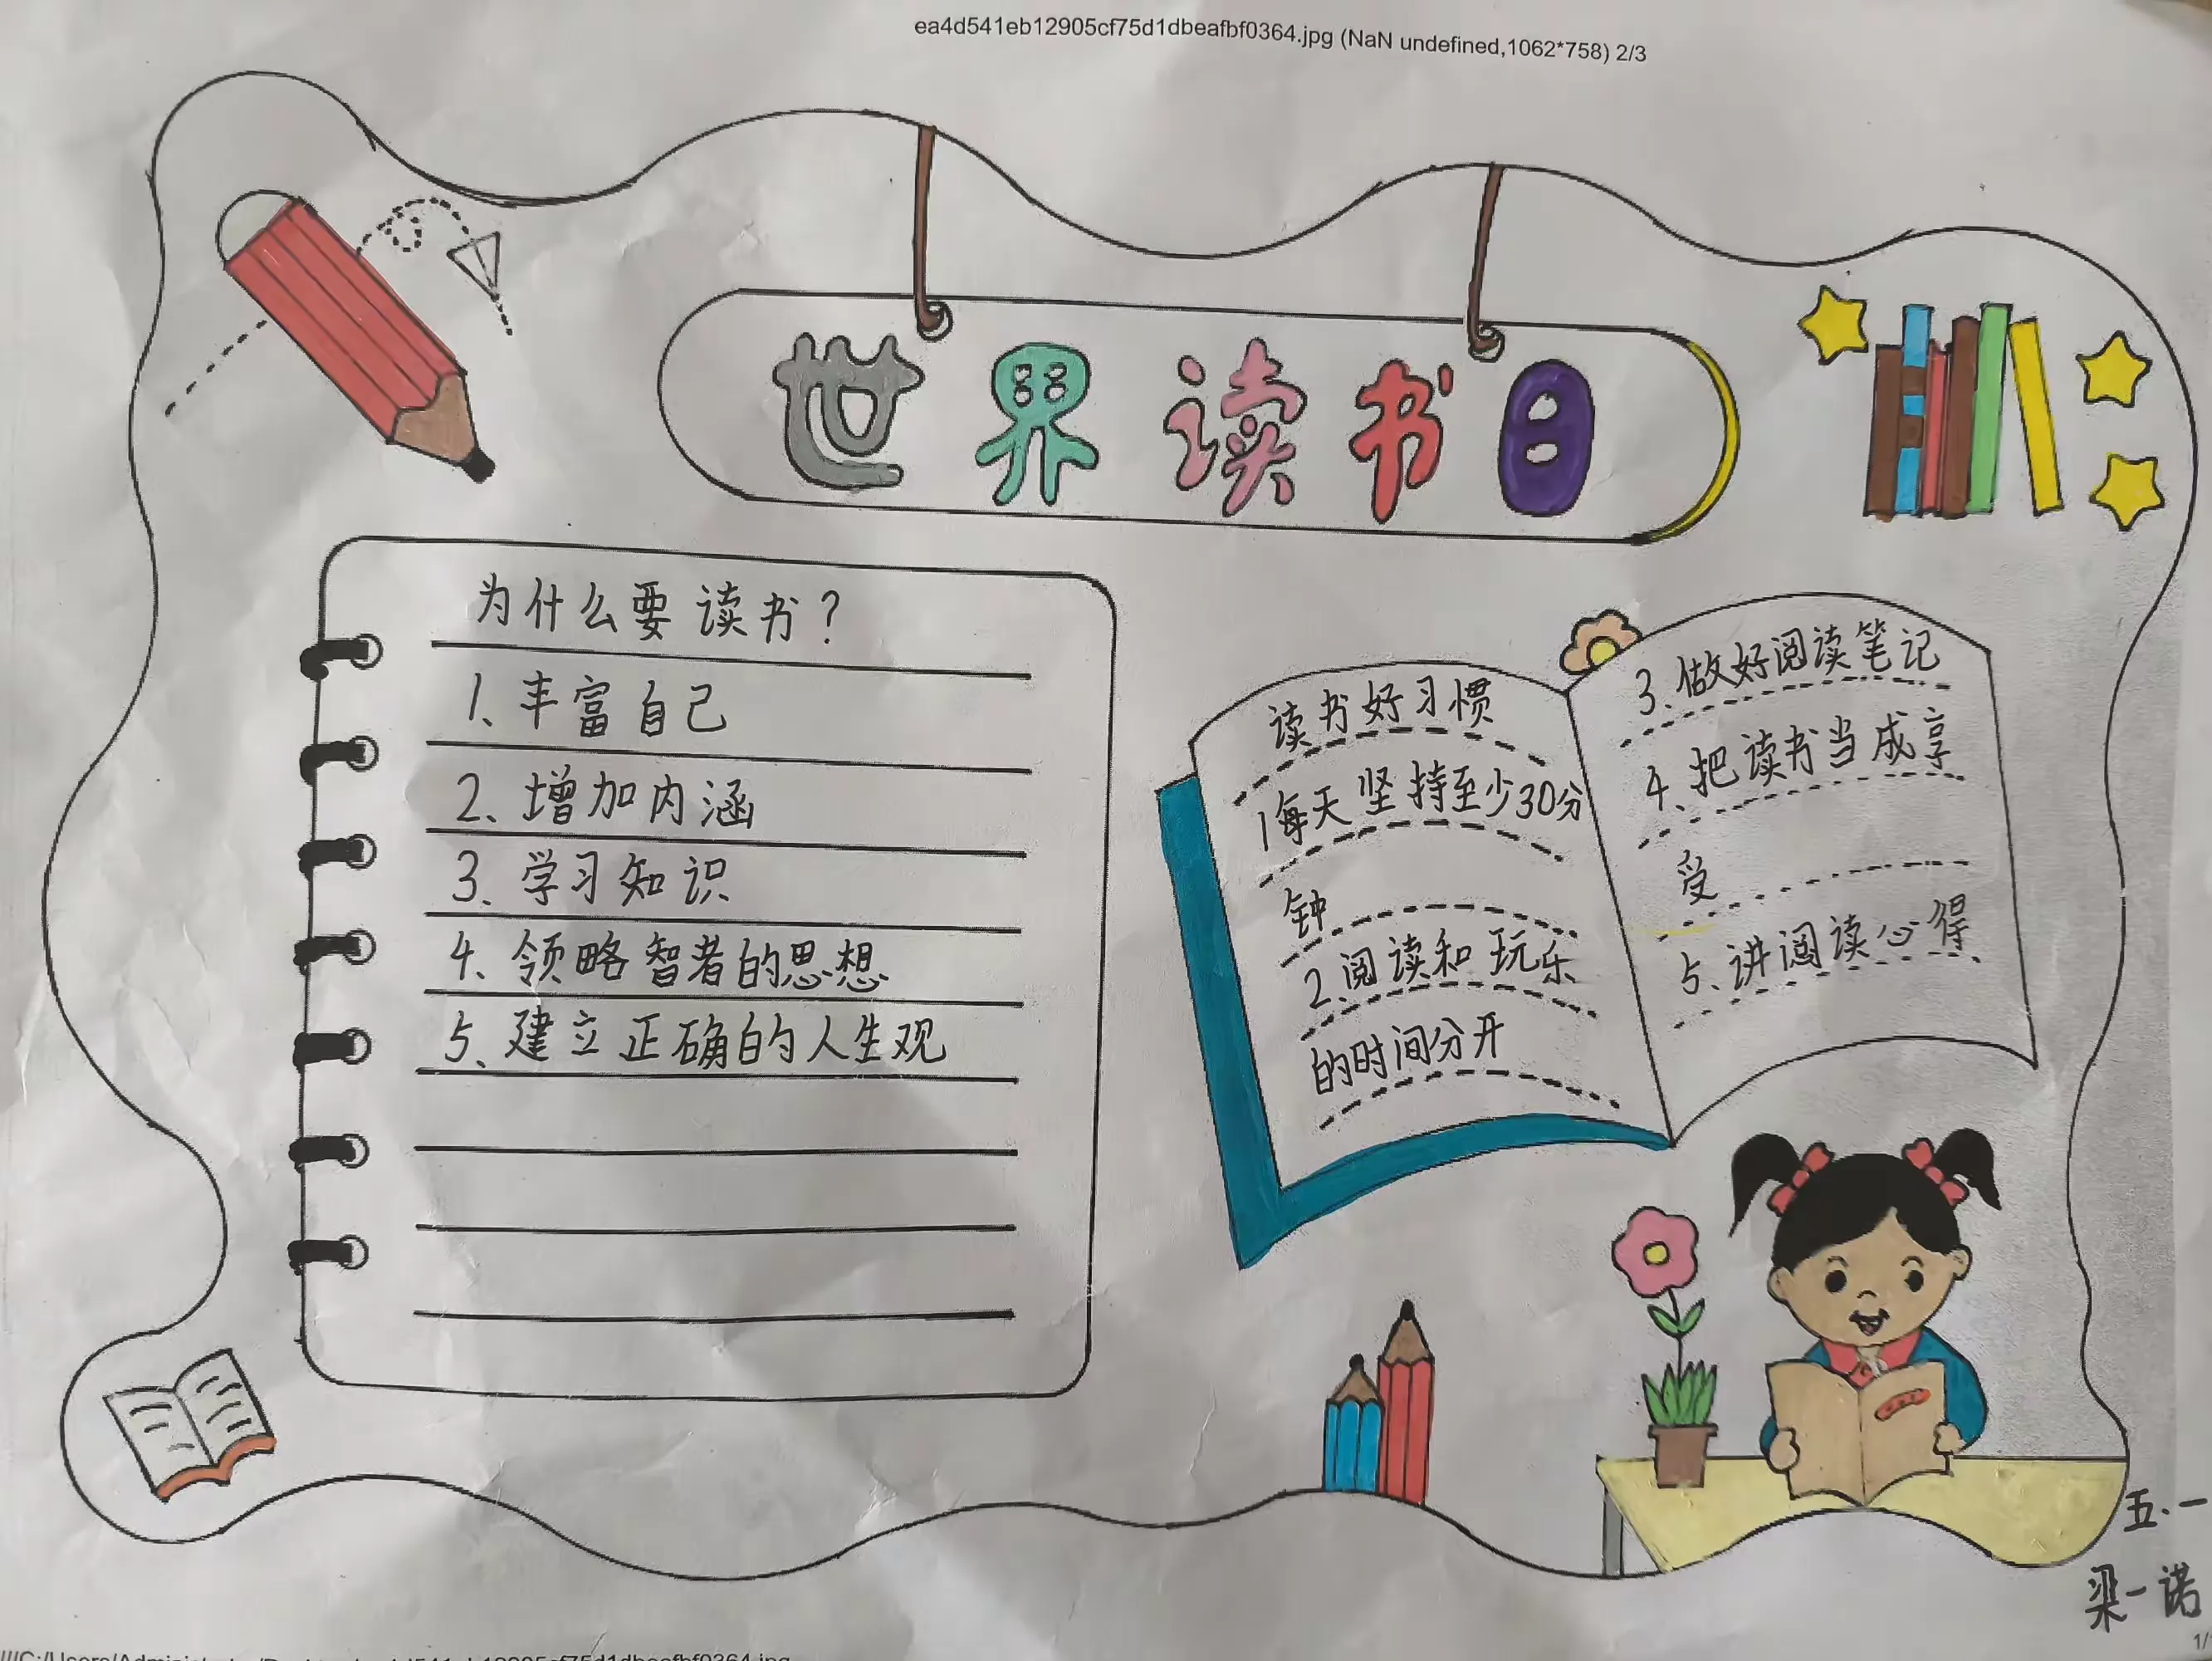 ea4d541eb12905cf75d1dbeafbf0364.jpg (NaN undefined,1062*758) 2/3
世界读书日
为什么要读书?
1、丰富自己
2、增加内涵
3、学习知识
4、领略智者的思想
5、建立正确的人生观
读书好习惯
1每天坚持至少30分
钟
2、阅读和玩乐
的时间分开
3、做好阅读笔记
4、把读书当成享
受
5、讲阅读心得
五、一
梁一诺